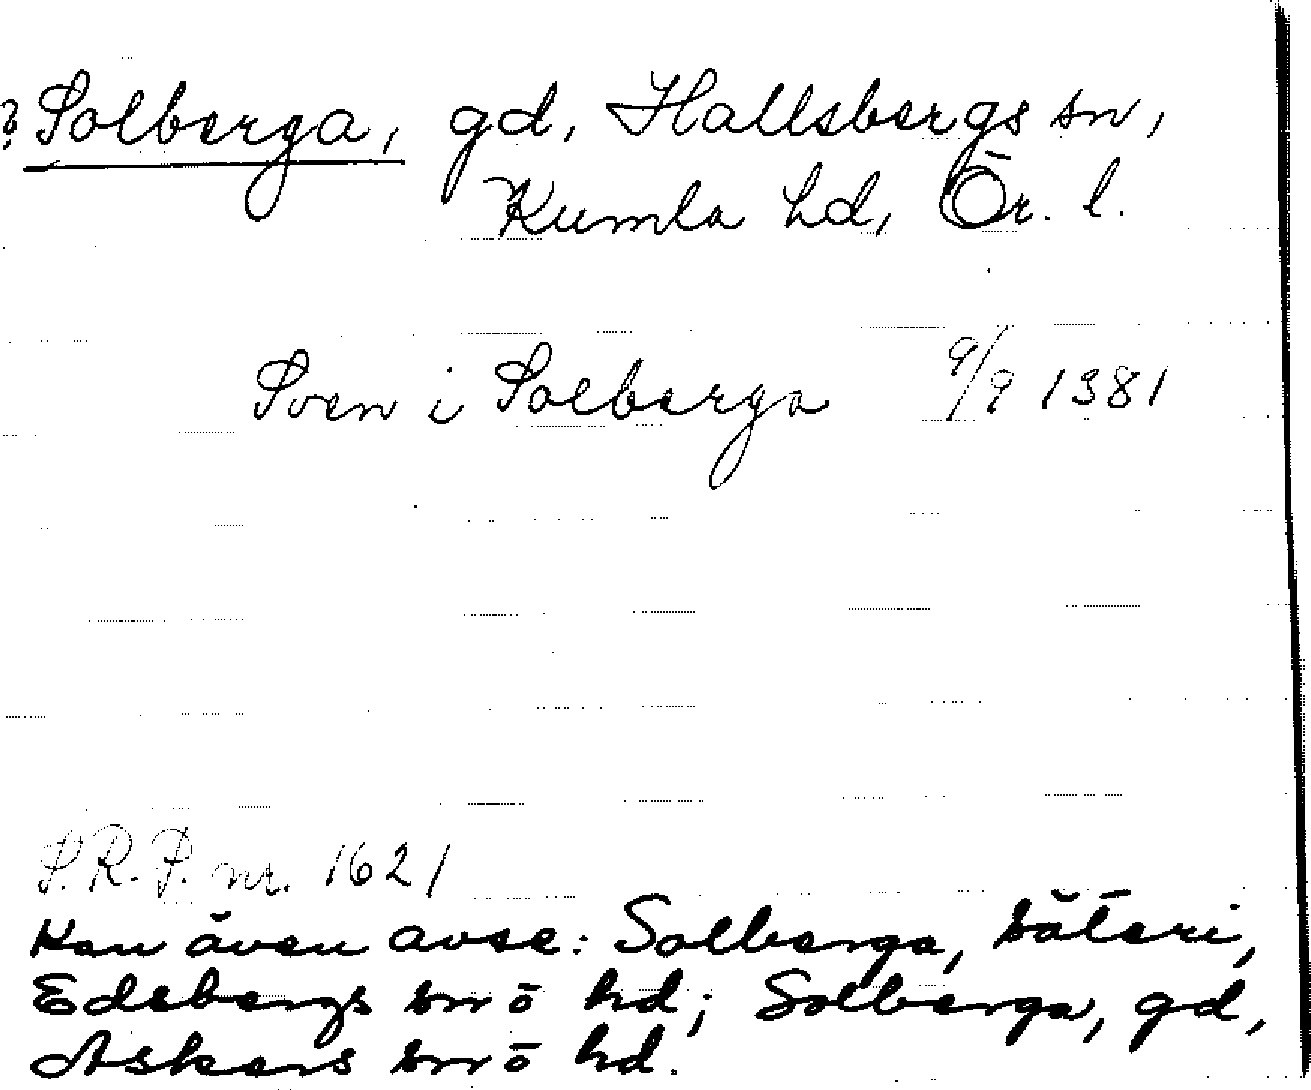 ? Solberga, gd, Hallsbergs sn,
Kumla hd, Ör. l.
Sven i Solberga 9/9 1381
S.R.P. nr. 1621
Kan även avse: Solberga, säteri,
Edsbergs sn o hd; Solberga, gd,
Askers sn o hd.